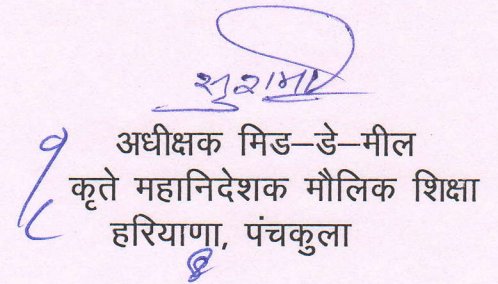 अधीक्षक मिड–डे–मील
कृते महानिदेशक मौलिक शिक्षा
हरियाणा, पंचकुला